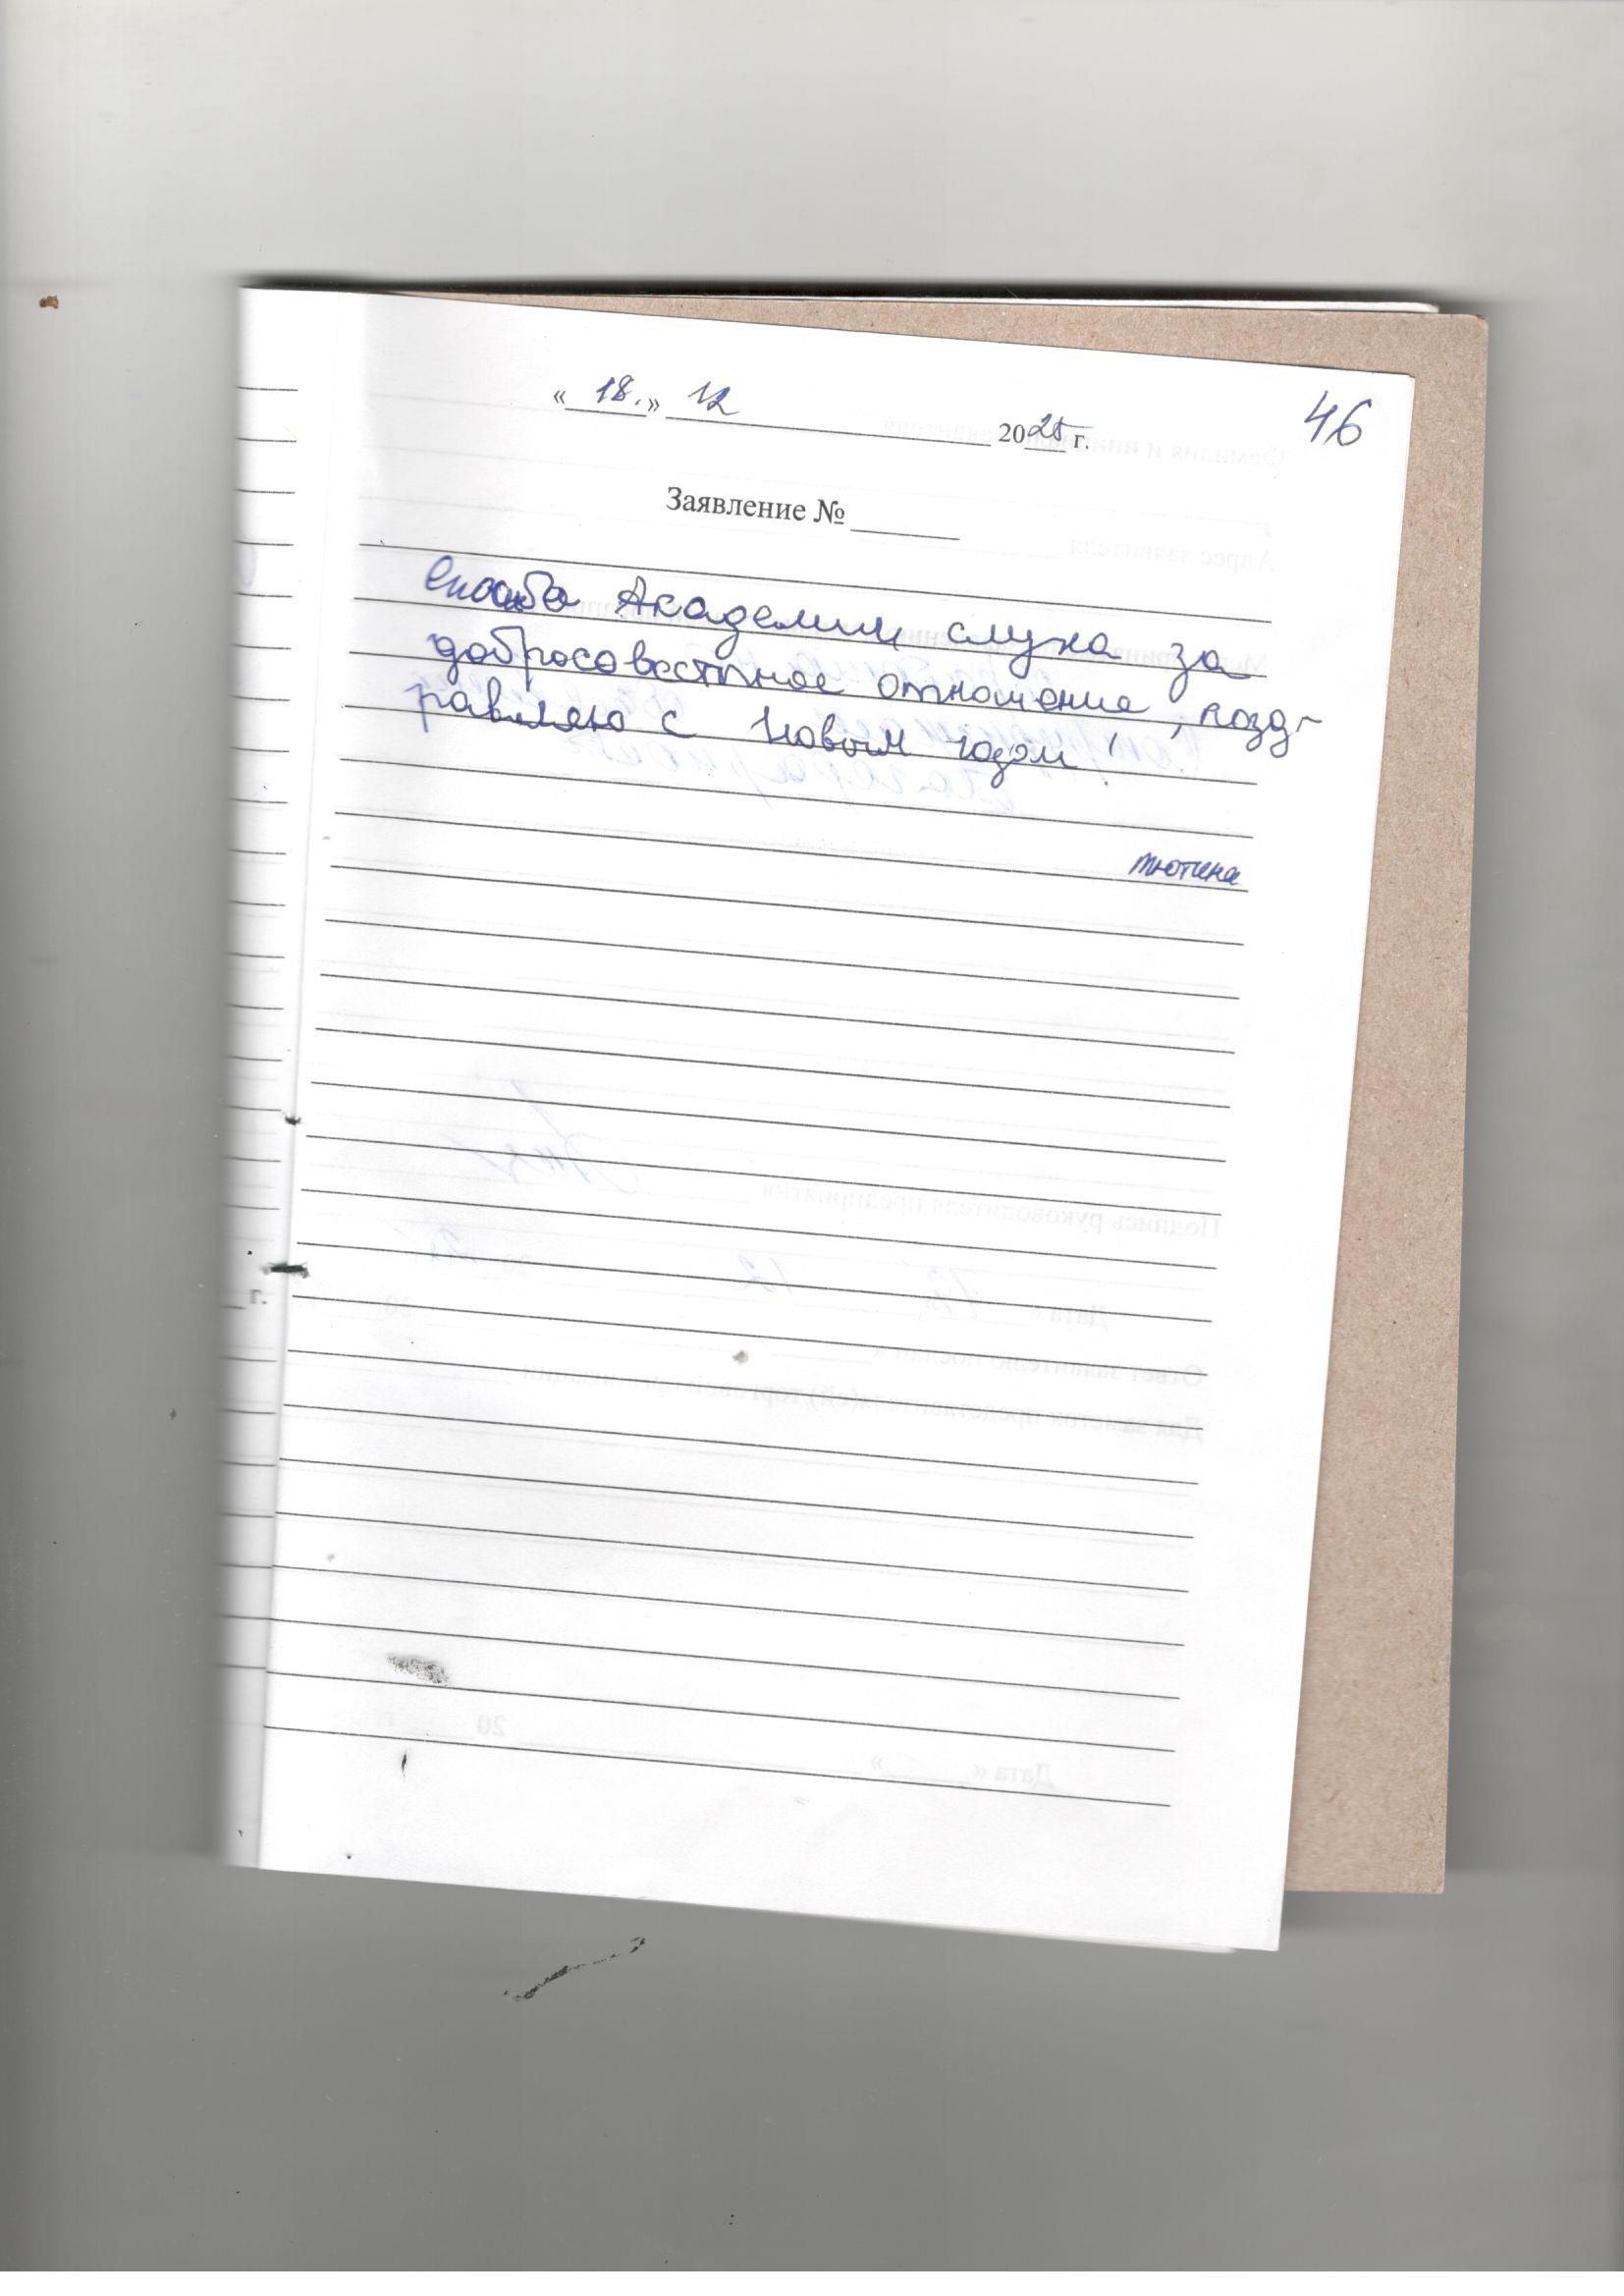 46
« 18. » 12 2025 г.
Заявление №
Спасибо Академии слуха за
добросовестное отношение, позд-
равляю с Новым годом!
Тютина